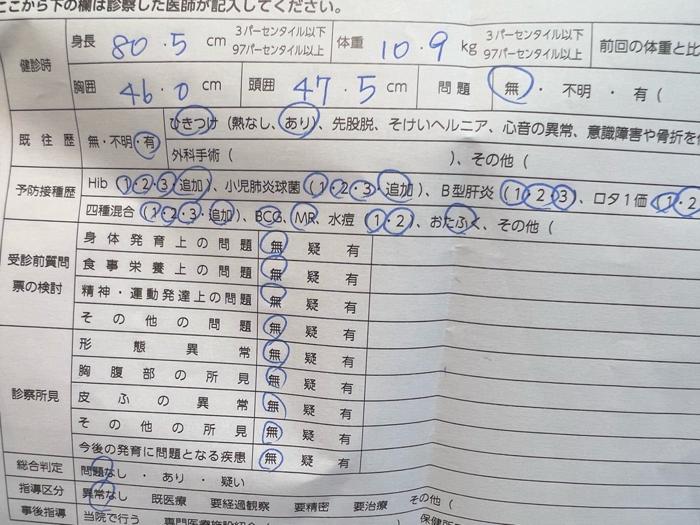 ここから下の欄は診察した医師が記入してください。
健診時 身長 80.5 cm 3パーセンタイル以下 97パーセンタイル以上 体重 10.9 kg 3パーセンタイル以下 97パーセンタイル以上 前回の体重と比
胸囲 46.0 cm 頭囲 47.5 cm 問題 無・不明・有(
既往歴 無・不明・有 ひきつけ(熱なし、あり)、先股脱、そけいヘルニア、心音の異常、意識障害や骨折を
外科手術( )、その他(
予防接種歴 Hib(1・2・3・追加)、小児肺炎球菌(1・2・3・追加)、B型肝炎(1・2・3)、ロタ1価(1・2
四種混合(1・2・3・追加)、BCG、MR、水痘(1・2)、おたふく、その他(
受診前質問票の検討 身体発育上の問題 無 疑 有
食事栄養上の問題 無 疑 有
精神・運動発達上の問題 無 疑 有
その他の問題 無 疑 有
診察所見 形態異常 無 疑 有
胸腹部の所見 無 疑 有
皮ふの異常 無 疑 有
その他の所見 無 疑 有
今後の発育に問題となる疾患 無 疑 有
総合判定 問題なし・あり・疑い
指導区分 異常なし 既医療 要経過観察 要精密 要治療 その他(
事後指導 当院で行う 専門医療施設紹介( 保健所